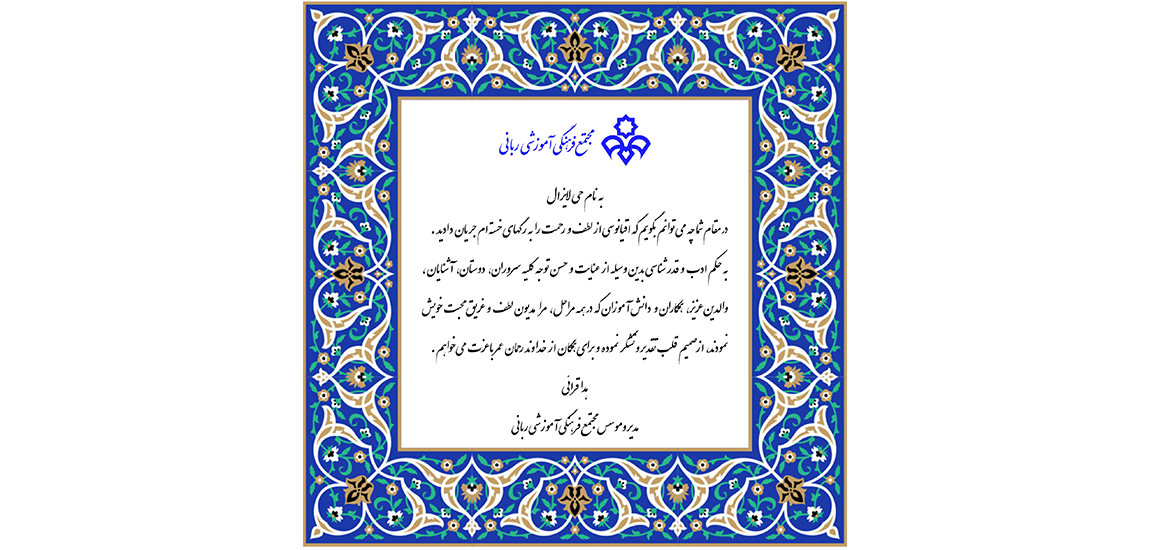 مجتمع فرهنگی آموزشی ربانی
به نام حی لایزال
در مقام شما چه می توانم بگویم که اقیانوسی از لطف و رحمت را به رگهای خسته ام جریان دادید .
به حکم ادب و قدرشناسی بدین وسیله از عنایت و حسن توجه کلیه سروران، دوستان، آشنایان ،
والدین عزیز، همکاران و دانش آموزان که در همه مراحل، مرا مدیون لطف و غریق محبت خویش
نمودند، از صمیم قلب تقدیر و تشکر نموده و برای همگان از خداوند رحمان عمر با عزت می خواهم .
هدا قرائی
مدیر و موسس مجتمع فرهنگی آموزشی ربانی